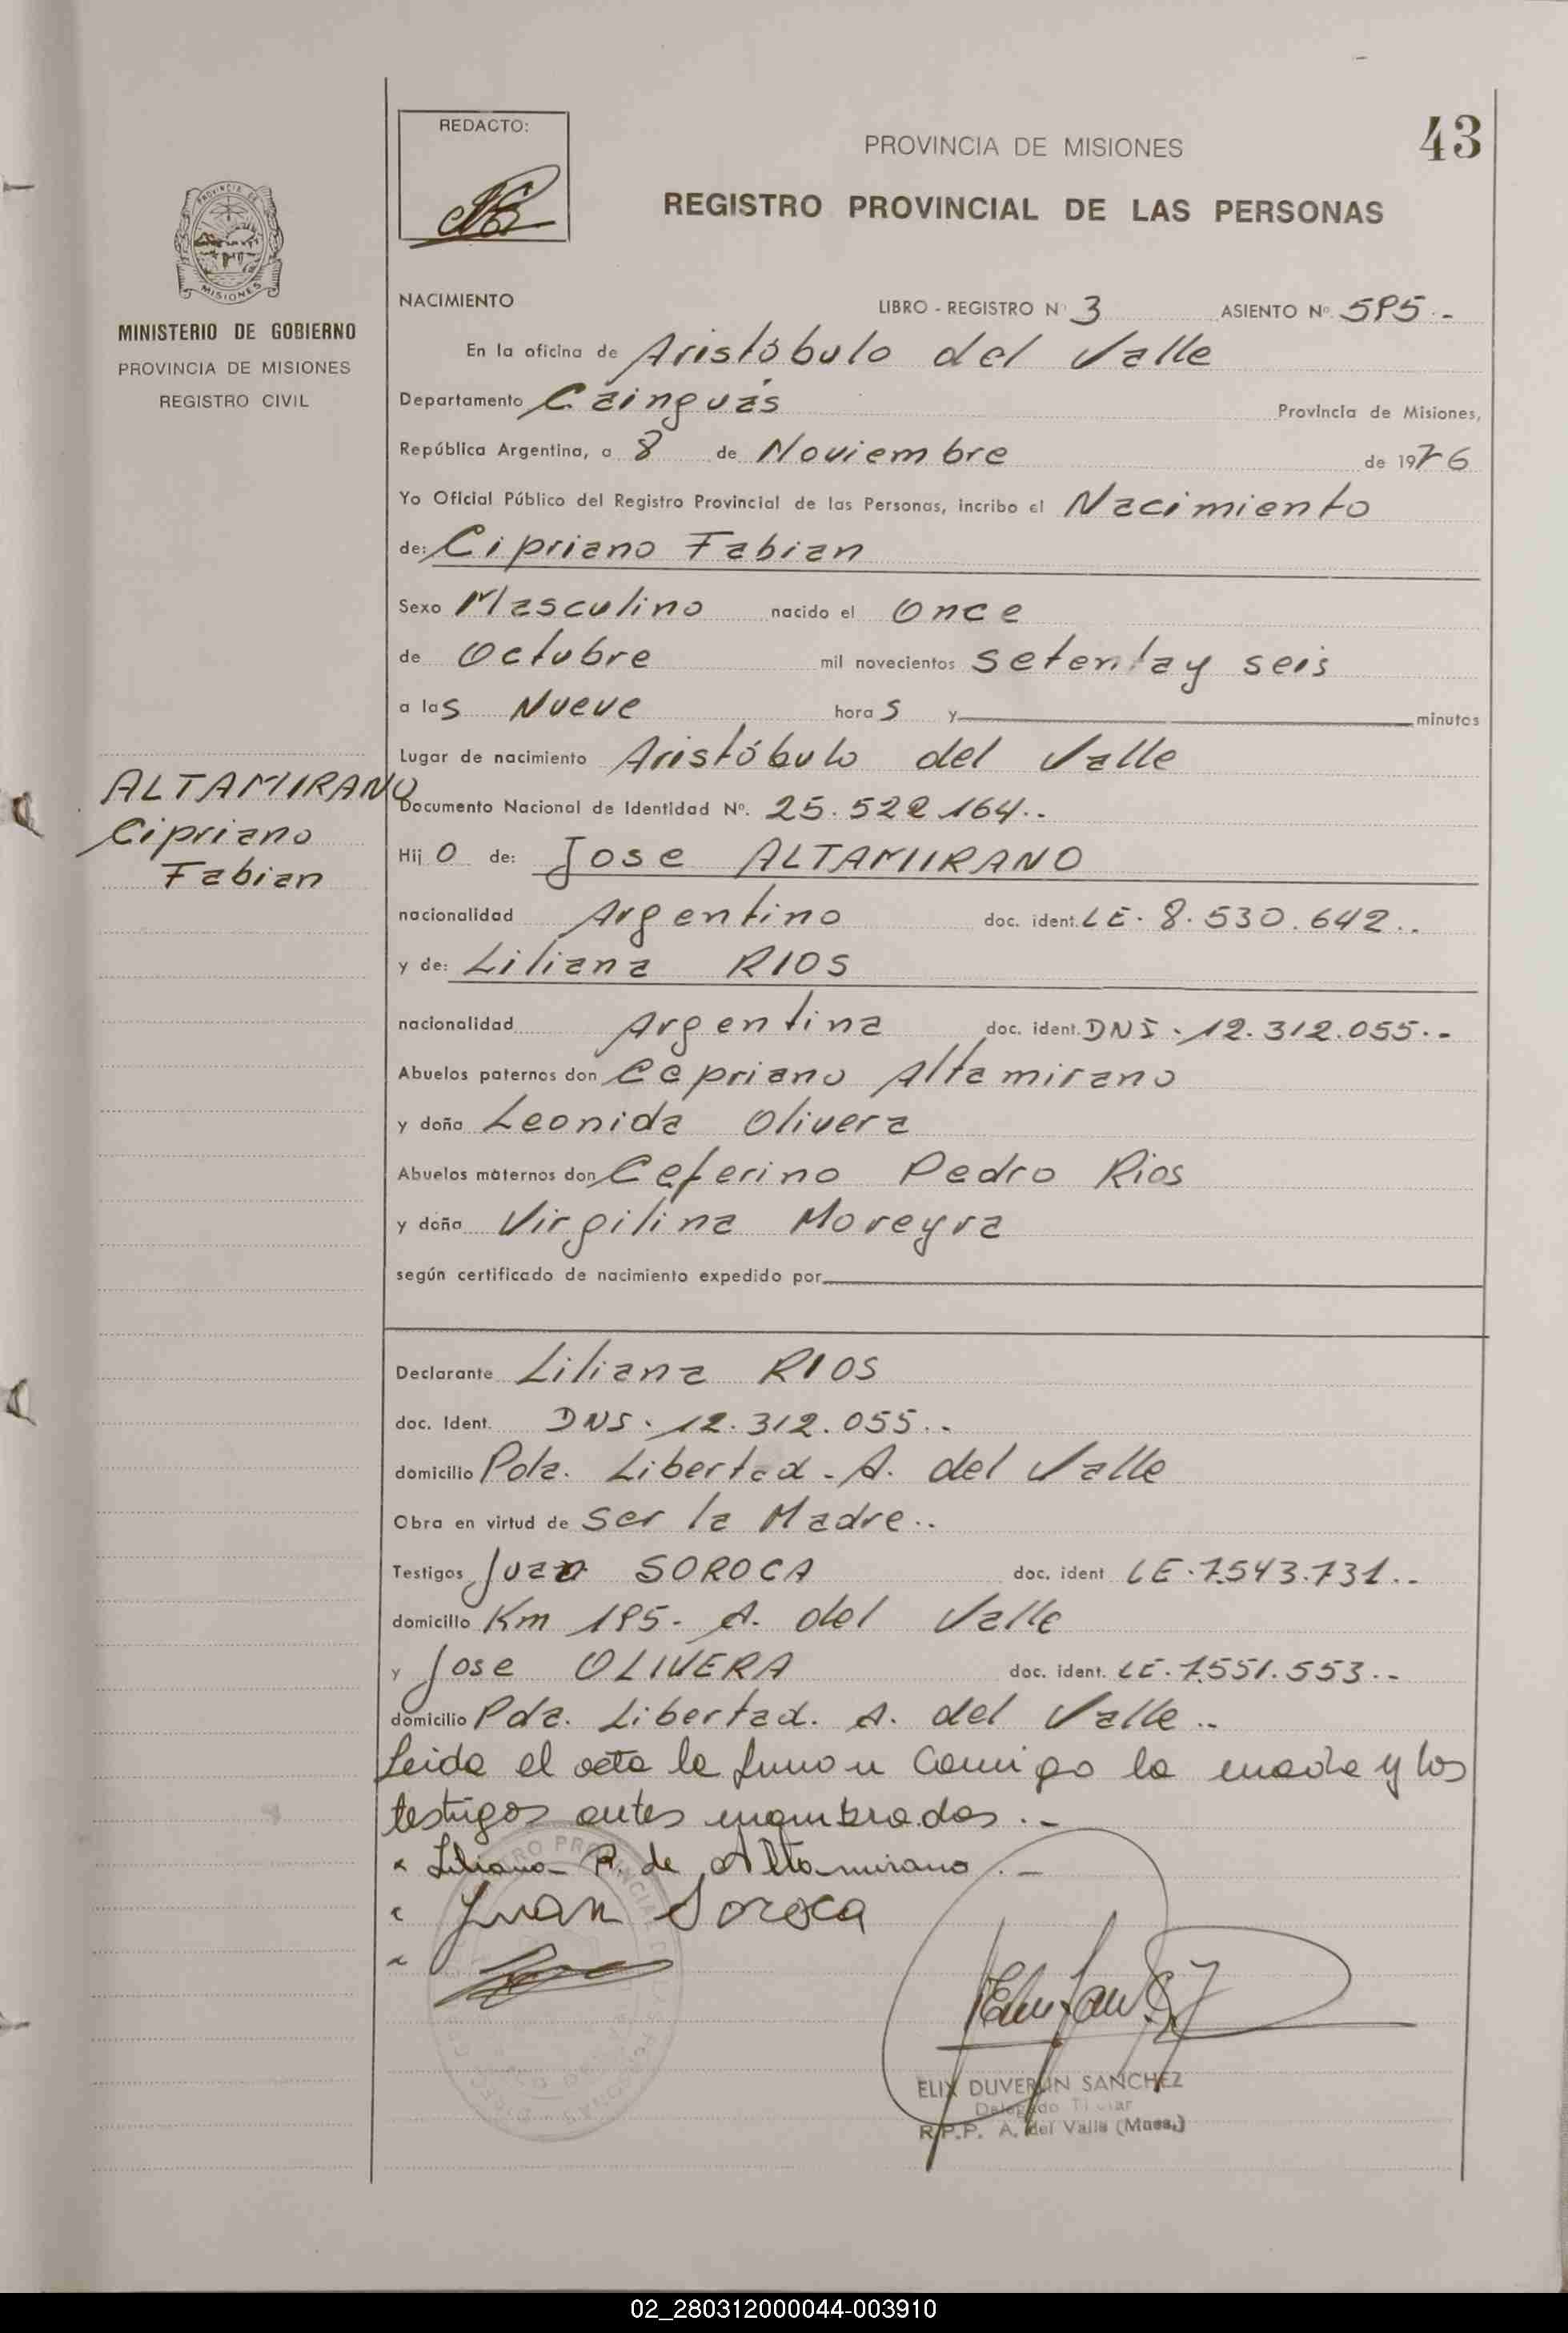 43
REDACTO:
PROVINCIA DE MISIONES
REGISTRO PROVINCIAL DE LAS PERSONAS
PROVINCIA DE
MISIONES
MINISTERIO DE GOBIERNO
PROVINCIA DE MISIONES
REGISTRO CIVIL
NACIMIENTO LIBRO - REGISTRO Nº 3 ASIENTO Nº 595.-
En la oficina de Aristóbulo del Valle
Departamento Cainguás Provincia de Misiones,
República Argentina, a 8 de Noviembre de 1976
Yo Oficial Público del Registro Provincial de las Personas, incribo el Nacimiento
de: Cipriano Fabian
Sexo Masculino nacido el Once
de Octubre mil novecientos setenta y seis
a las Nueve horas y minutos
Lugar de nacimiento Aristóbulo del Valle
ALTAMIRANO
Cipriano
Fabian
Documento Nacional de Identidad Nº. 25.522.164..
Hijo de: Jose ALTAMIRANO
nacionalidad Argentino doc. ident. LE. 8.530.642..
y de: Liliana RIOS
nacionalidad Argentina doc. ident. DNI. 12.312.055..
Abuelos paternos don Cepriano Altamirano
y doña Leonida Olivera
Abuelos maternos don Ceferino Pedro Rios
y doña Virgilina Moreyra
según certificado de nacimiento expedido por
Declarante Liliana RIOS
doc. Ident. DNI. 12.312.055..
domicilio Pda. Libertad - A. del Valle
Obra en virtud de ser la Madre..
Testigos Juan SOROCA doc. ident LE. 7.543.731..
domicilio Km 195- A. del Valle
y Jose OLIVERA doc. ident. LE. 7.551.553..
domicilio Pda. Libertad. A. del Valle..
Leida el acta la firman conmigo la madre y los
testigos antes nombrados .-
Liliana R. de Altamirano .-
Juan Soroca
ELIX DUVERLIN SANCHEZ
Delegado Titular
R.P.P. A. del Valle (Mnes.)
02_280312000044-003910